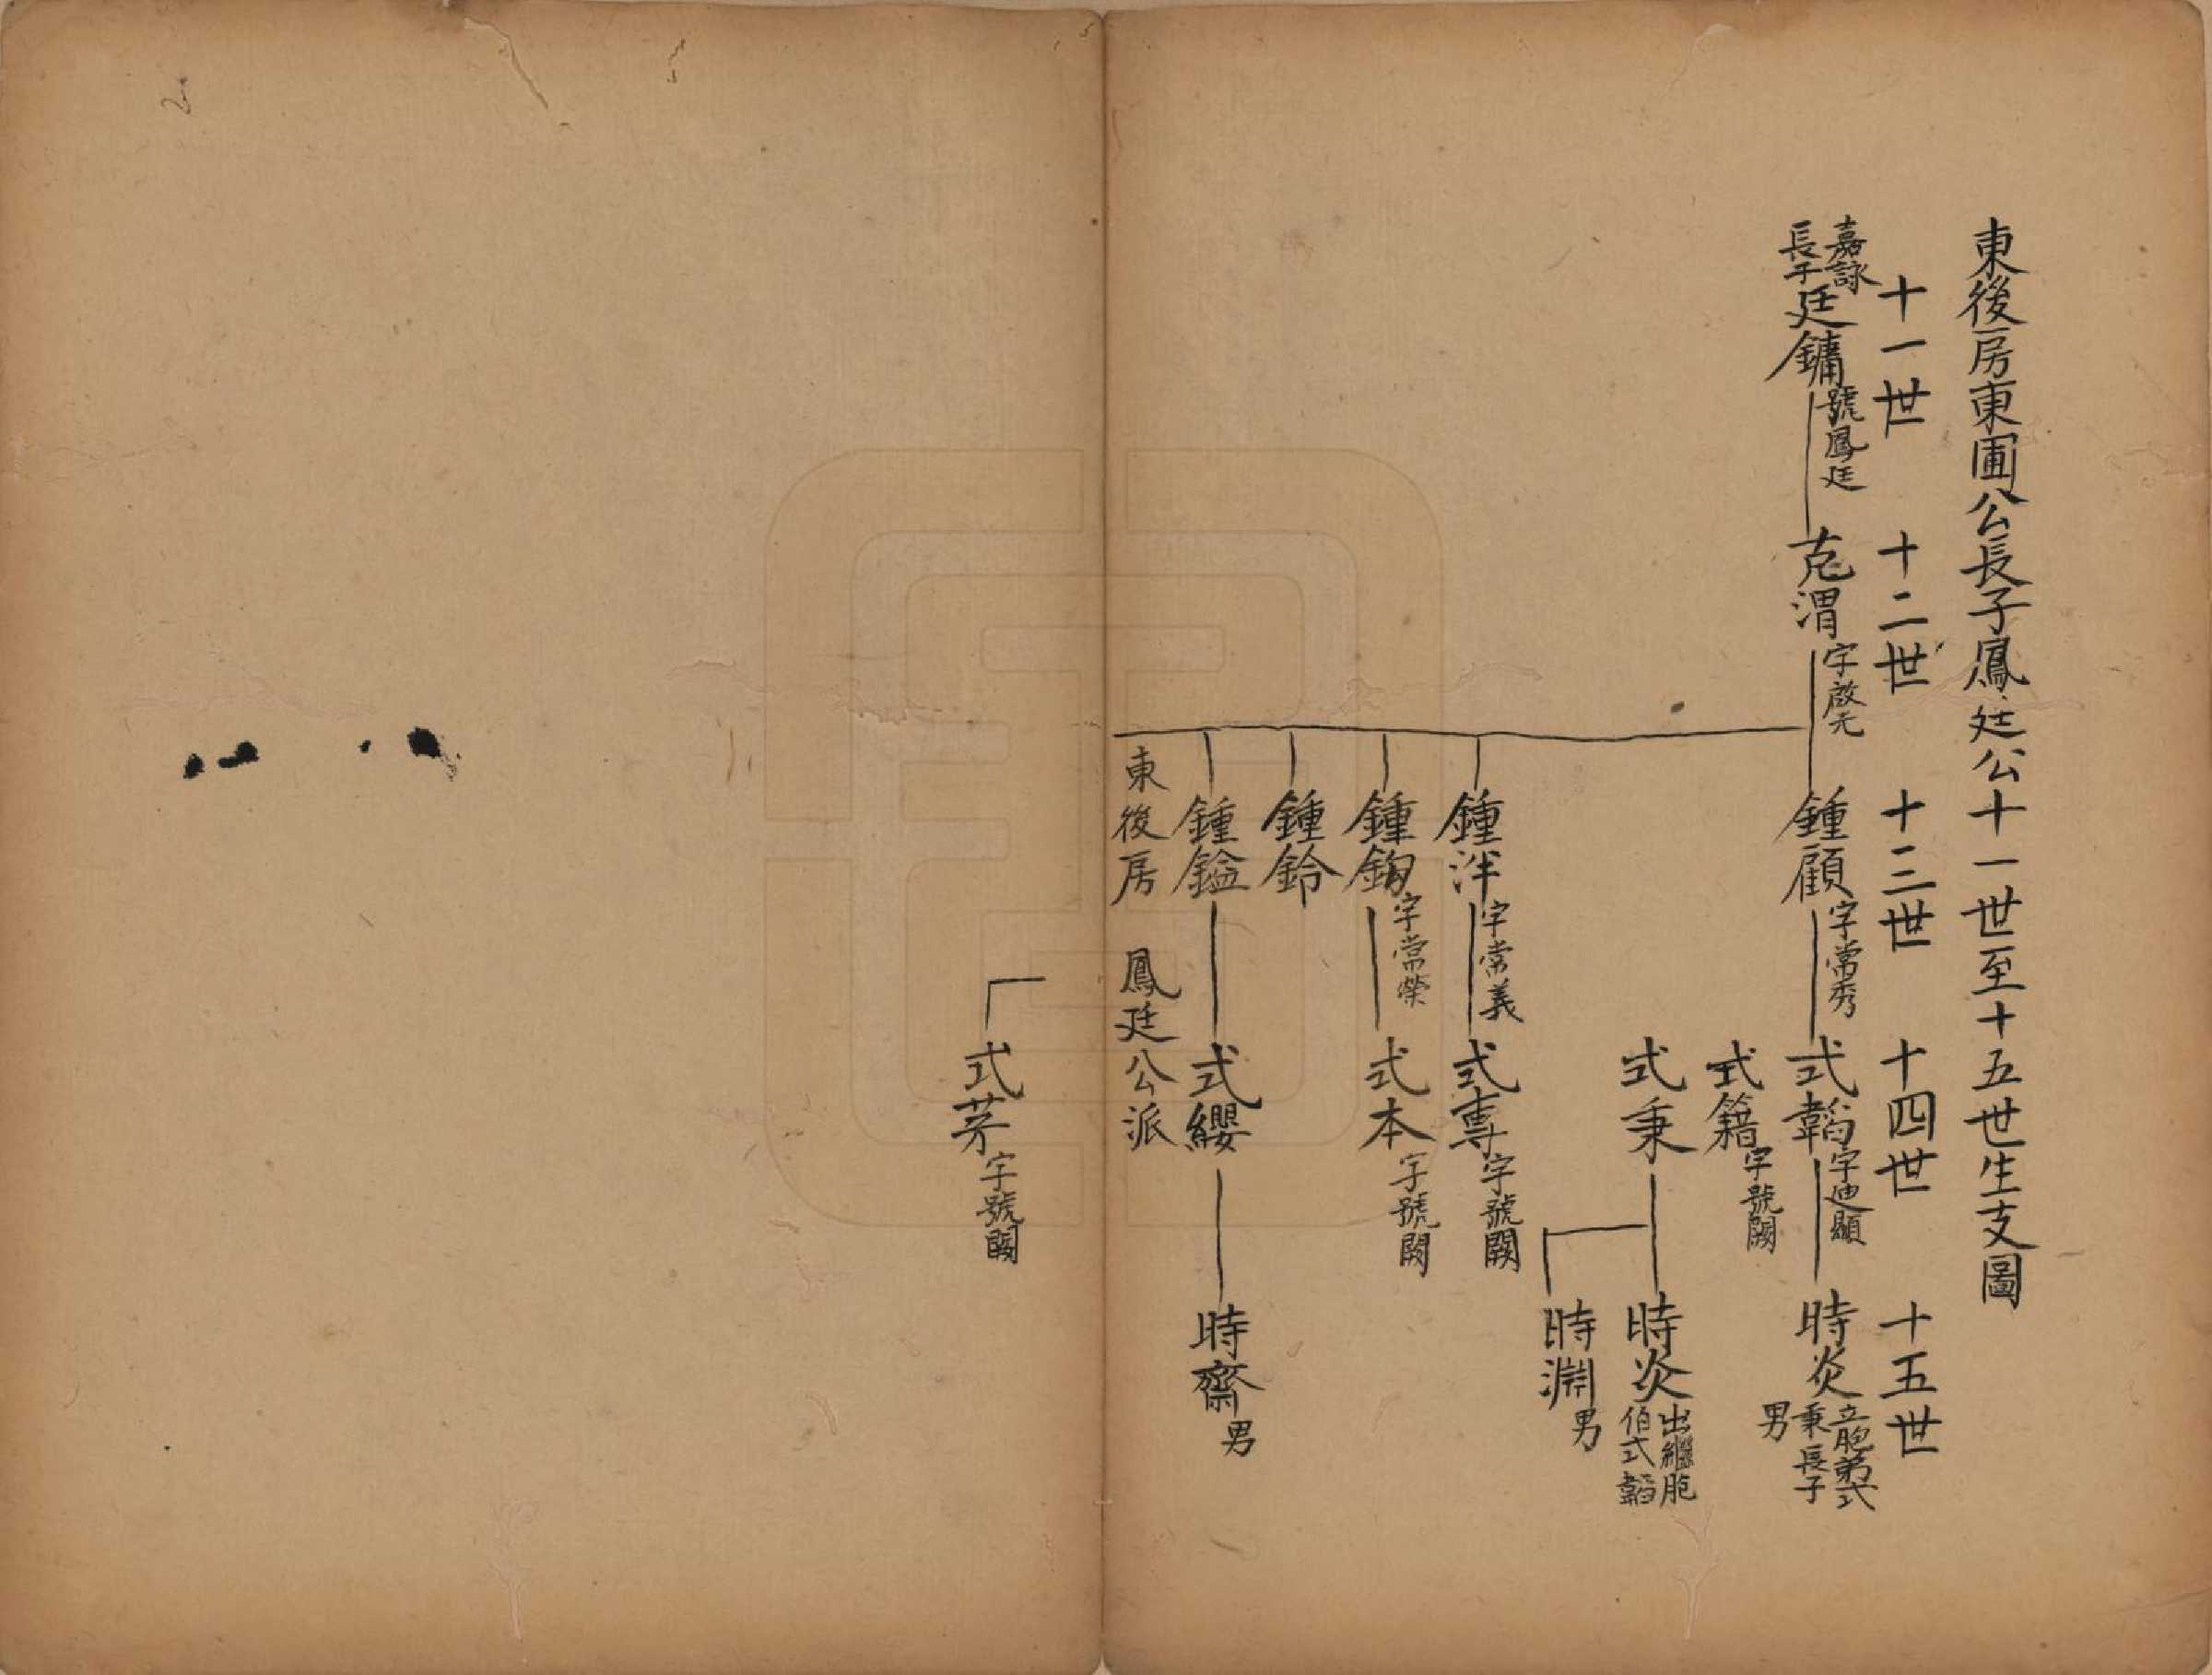 東後房東圃公長子鳳廷公十一世至十五世生支圖
十一世
十二世
十三世
十四世
十五世
嘉詠
長子
廷鏞
號鳳廷
克渭
字啟元
鍾顧
字常秀
式韜
字迪顯
時炎
立胞弟式
秉長子
男
式籍
字號闕
式秉
時炎
出繼胞
伯式韜
時淵
男
鍾泮
字常義
式專
字號闕
鍾鈞
字常榮
式本
字號闕
鍾鈴
鍾鎰
式纓
時齋
男
東後房
鳳廷公派
式茅
字號闕